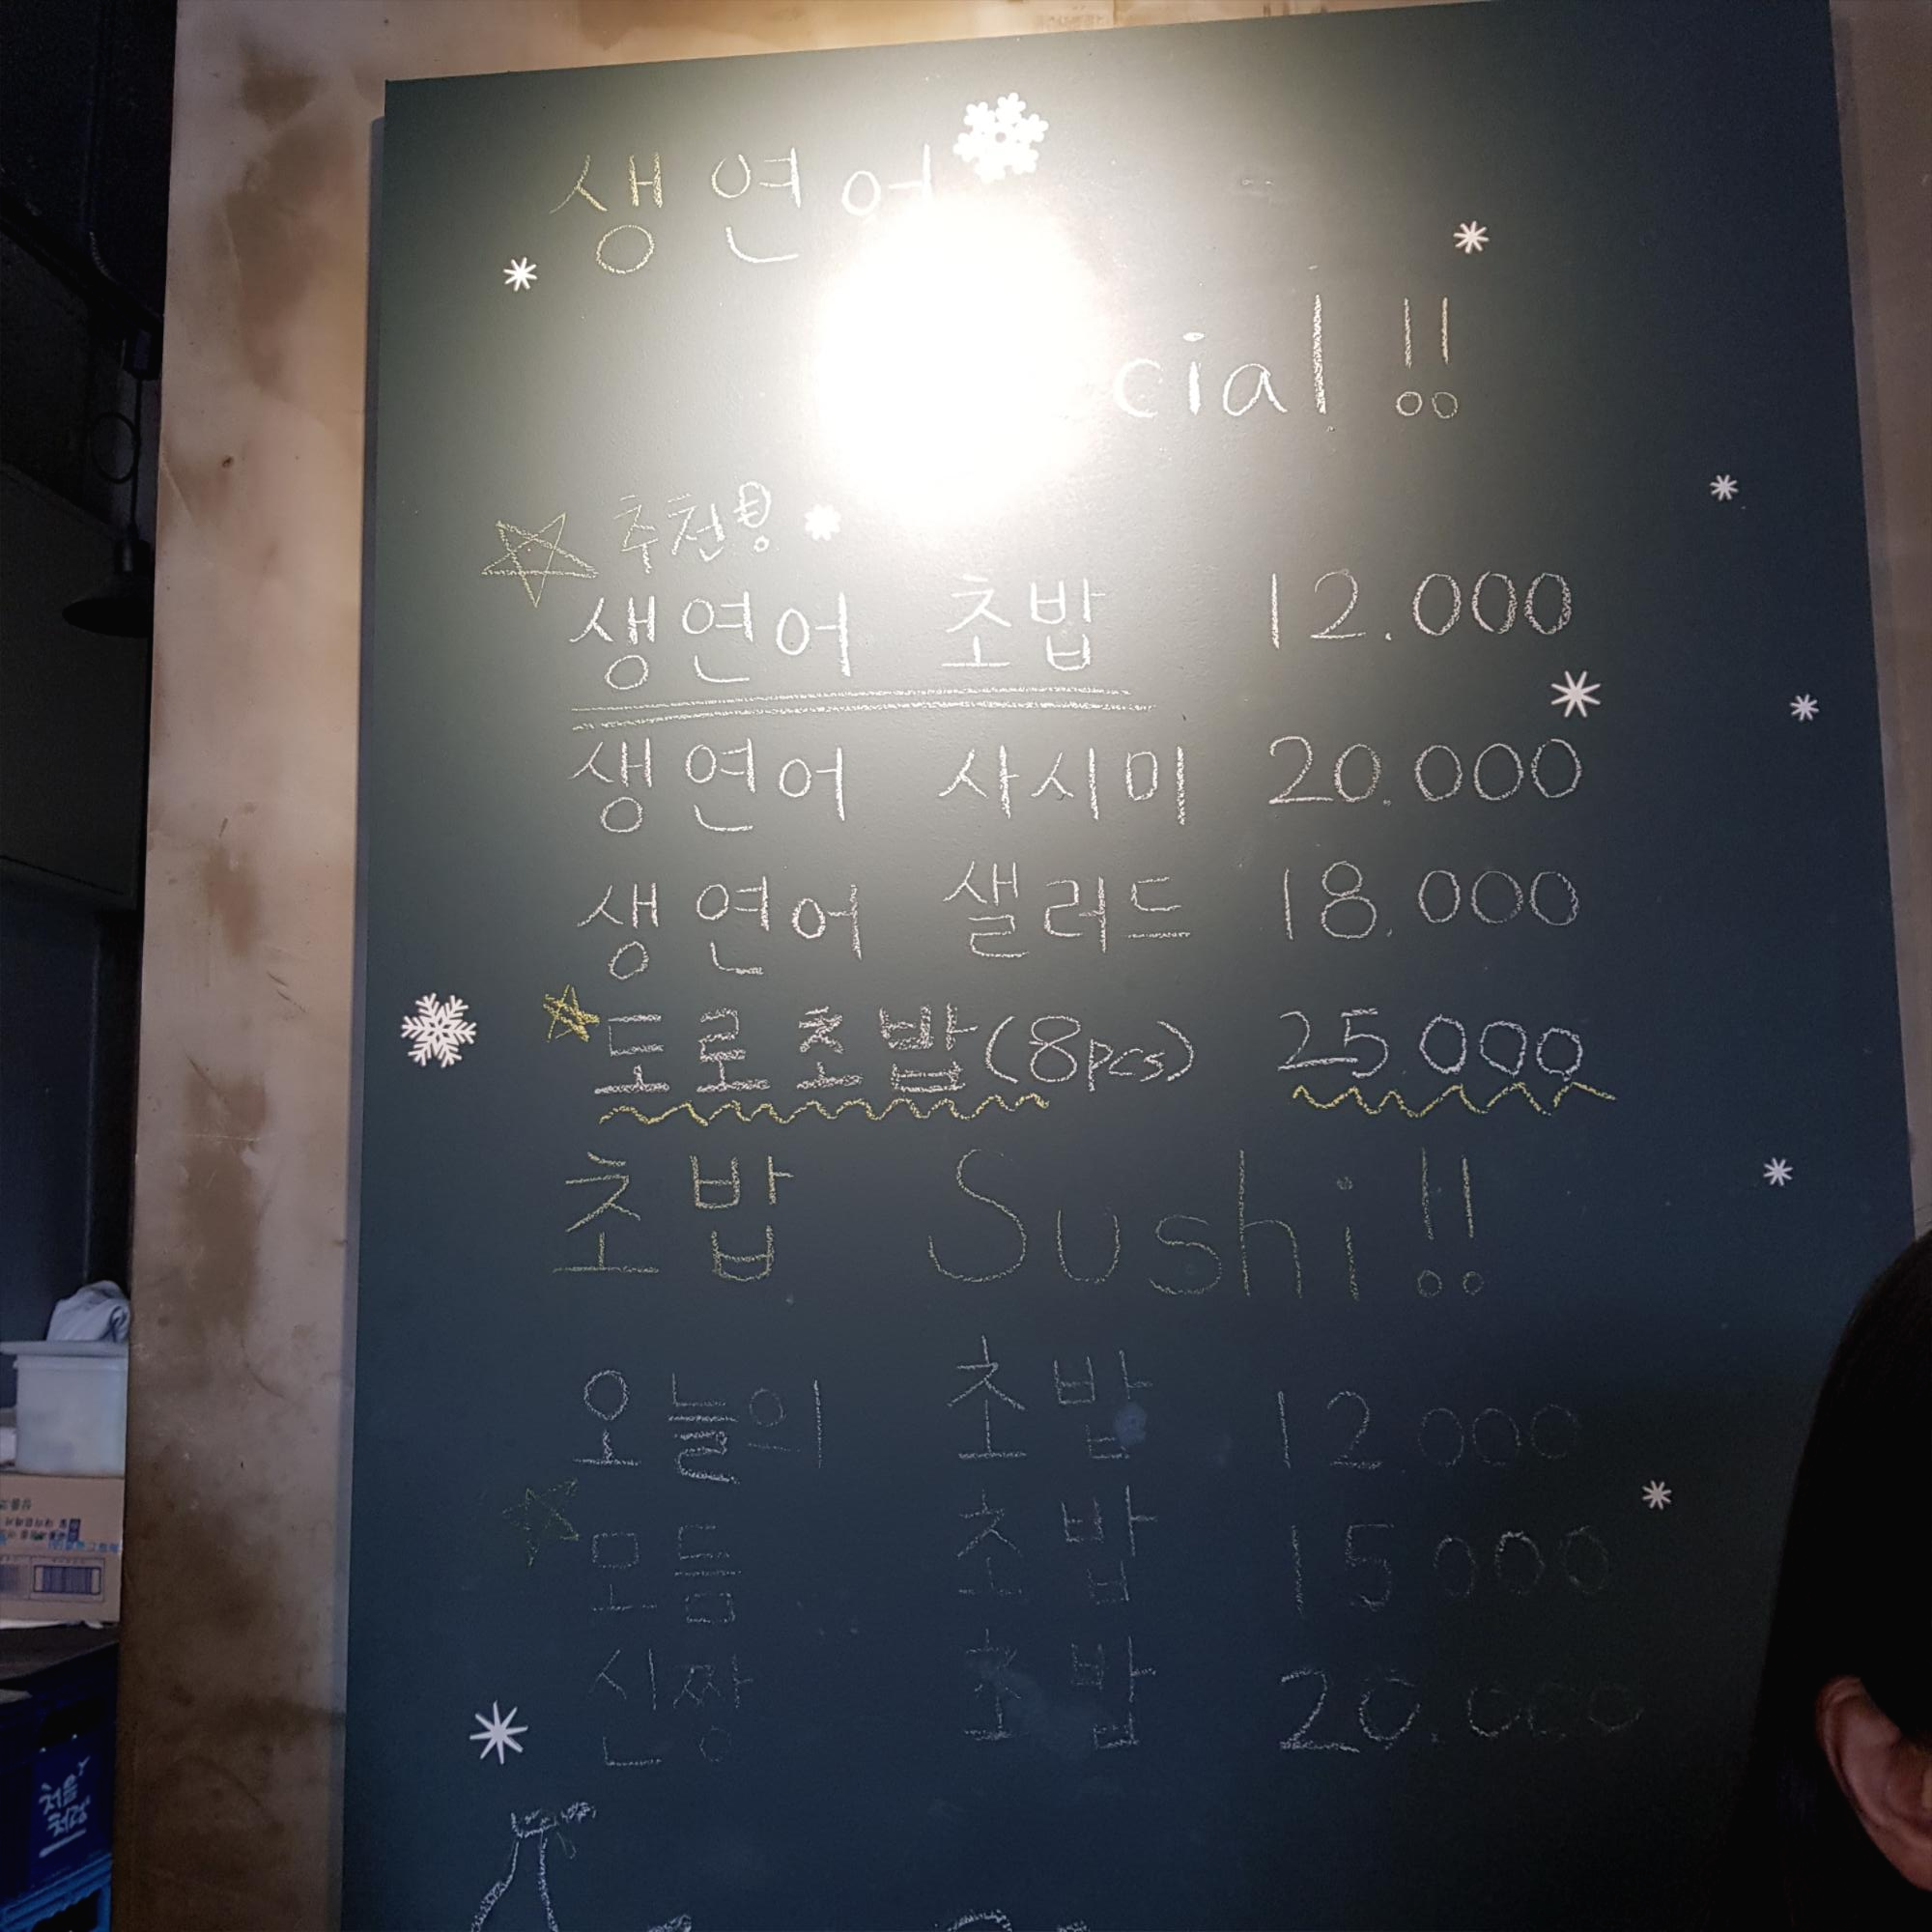 생연어
cial!!
추천!
생연어 초밥 12.000
생연어 사시미 20.000
생연어 샐러드 18.000
도로초밥(8pcs) 25000
초밥 Sushi!!
오늘의 초밥 12.000
모듬 초밥 15000
신짱 초밥 20.000
처음처럼